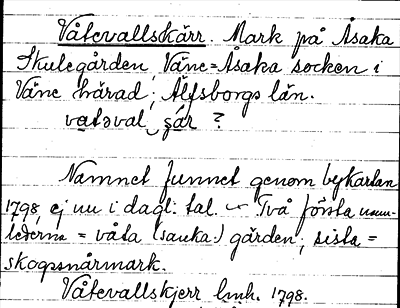 Våtevallskärr. Mark på Åsaka
Skulegården Väne=Åsaka socken i
Väne härad; Älfsborgs län.
vatəval, çär ?
Namnet funnet genom bykartan
1798, ej nu i dagl. tal. – Två första namn-
lederna = våta (sauka-) gärden; sista =
skogssnårmark.
Våtevallskjerr lmh. 1798.